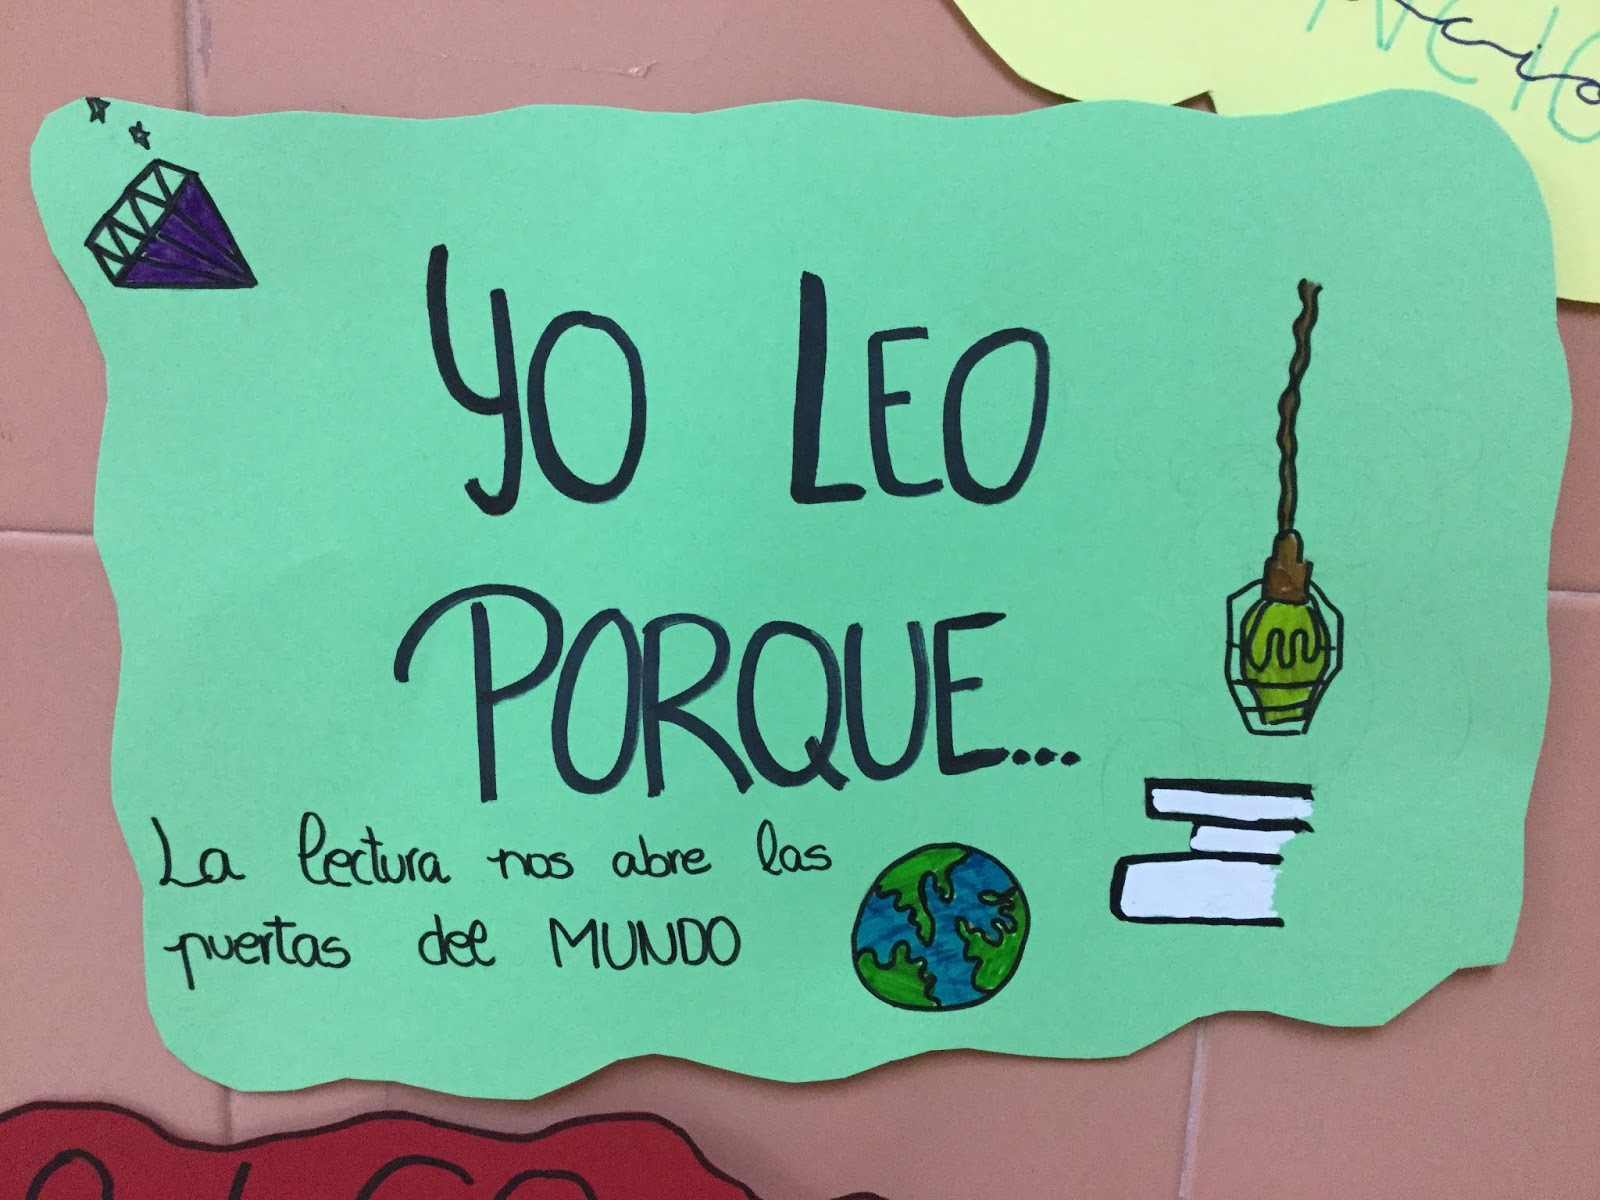 YO LEO
PORQUE...
La lectura nos abre las
puertas del MUNDO